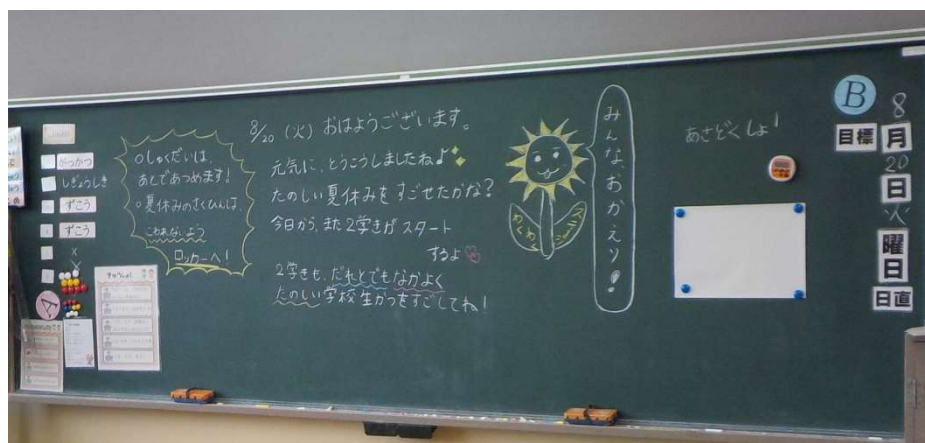 がっかつ
しぎょうしき
ずこう
ずこう
×
×
○しゅくだいは、
あとであつめます!
○夏休みのさくひんは、
こわれないよう
ロッカーへ!
8/20 (火) おはようございます。
元気に、とうこうしましたね♪
たのしい夏休みをすごせたかな?
今日から、また2学きがスタート
するよ♡
2学きも、だれとでもなかよく
たのしい学校生かつをすごしてね!
わくわく
みんな、おかえり!
あさどくしょ!
B
目標
8
月
20
日
火
曜
日
日直